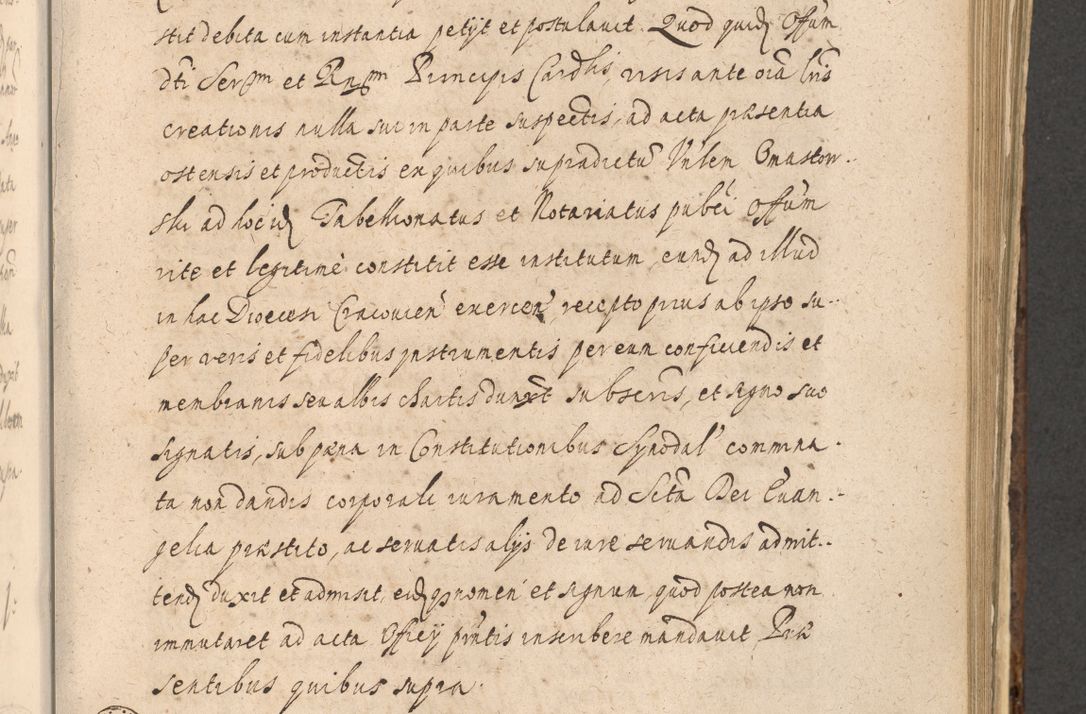 stit debita cum instantia petyt et postulavit. Quod quid Offum
dti Serm et Rnm Principis Cardlis, visis ante oia lris
creationis nulla sui in parte suspectis, ad acta præsentia
ostensis et productis ex quibus supradictu Vnlem Omastow-
ski ad hoc id Tabellionatus et Notariatus pubci Offum
rite et legitimè constitit esse institutum, eund ad illud
in hac Diœcesi Cracovien exercen, recepto prius ab ipso su-
per veris et fidelibus instrumentis per eum conficiendis et
membranis seu albis chartis dunxt subscris, et signo suo
signatis, sub pæna in Constitutionibus Synodal commina-
ta non dandis corporali iuramento ad Scta Dei Euan-
gelia præstito, ac servatis alijs de iure servandis admit-
tend duxit et admisit, eid nomen et signum, quod postea non
immutaret ad acta Officij pntis inscribere mandavit Præ
sentibus quibus supra.